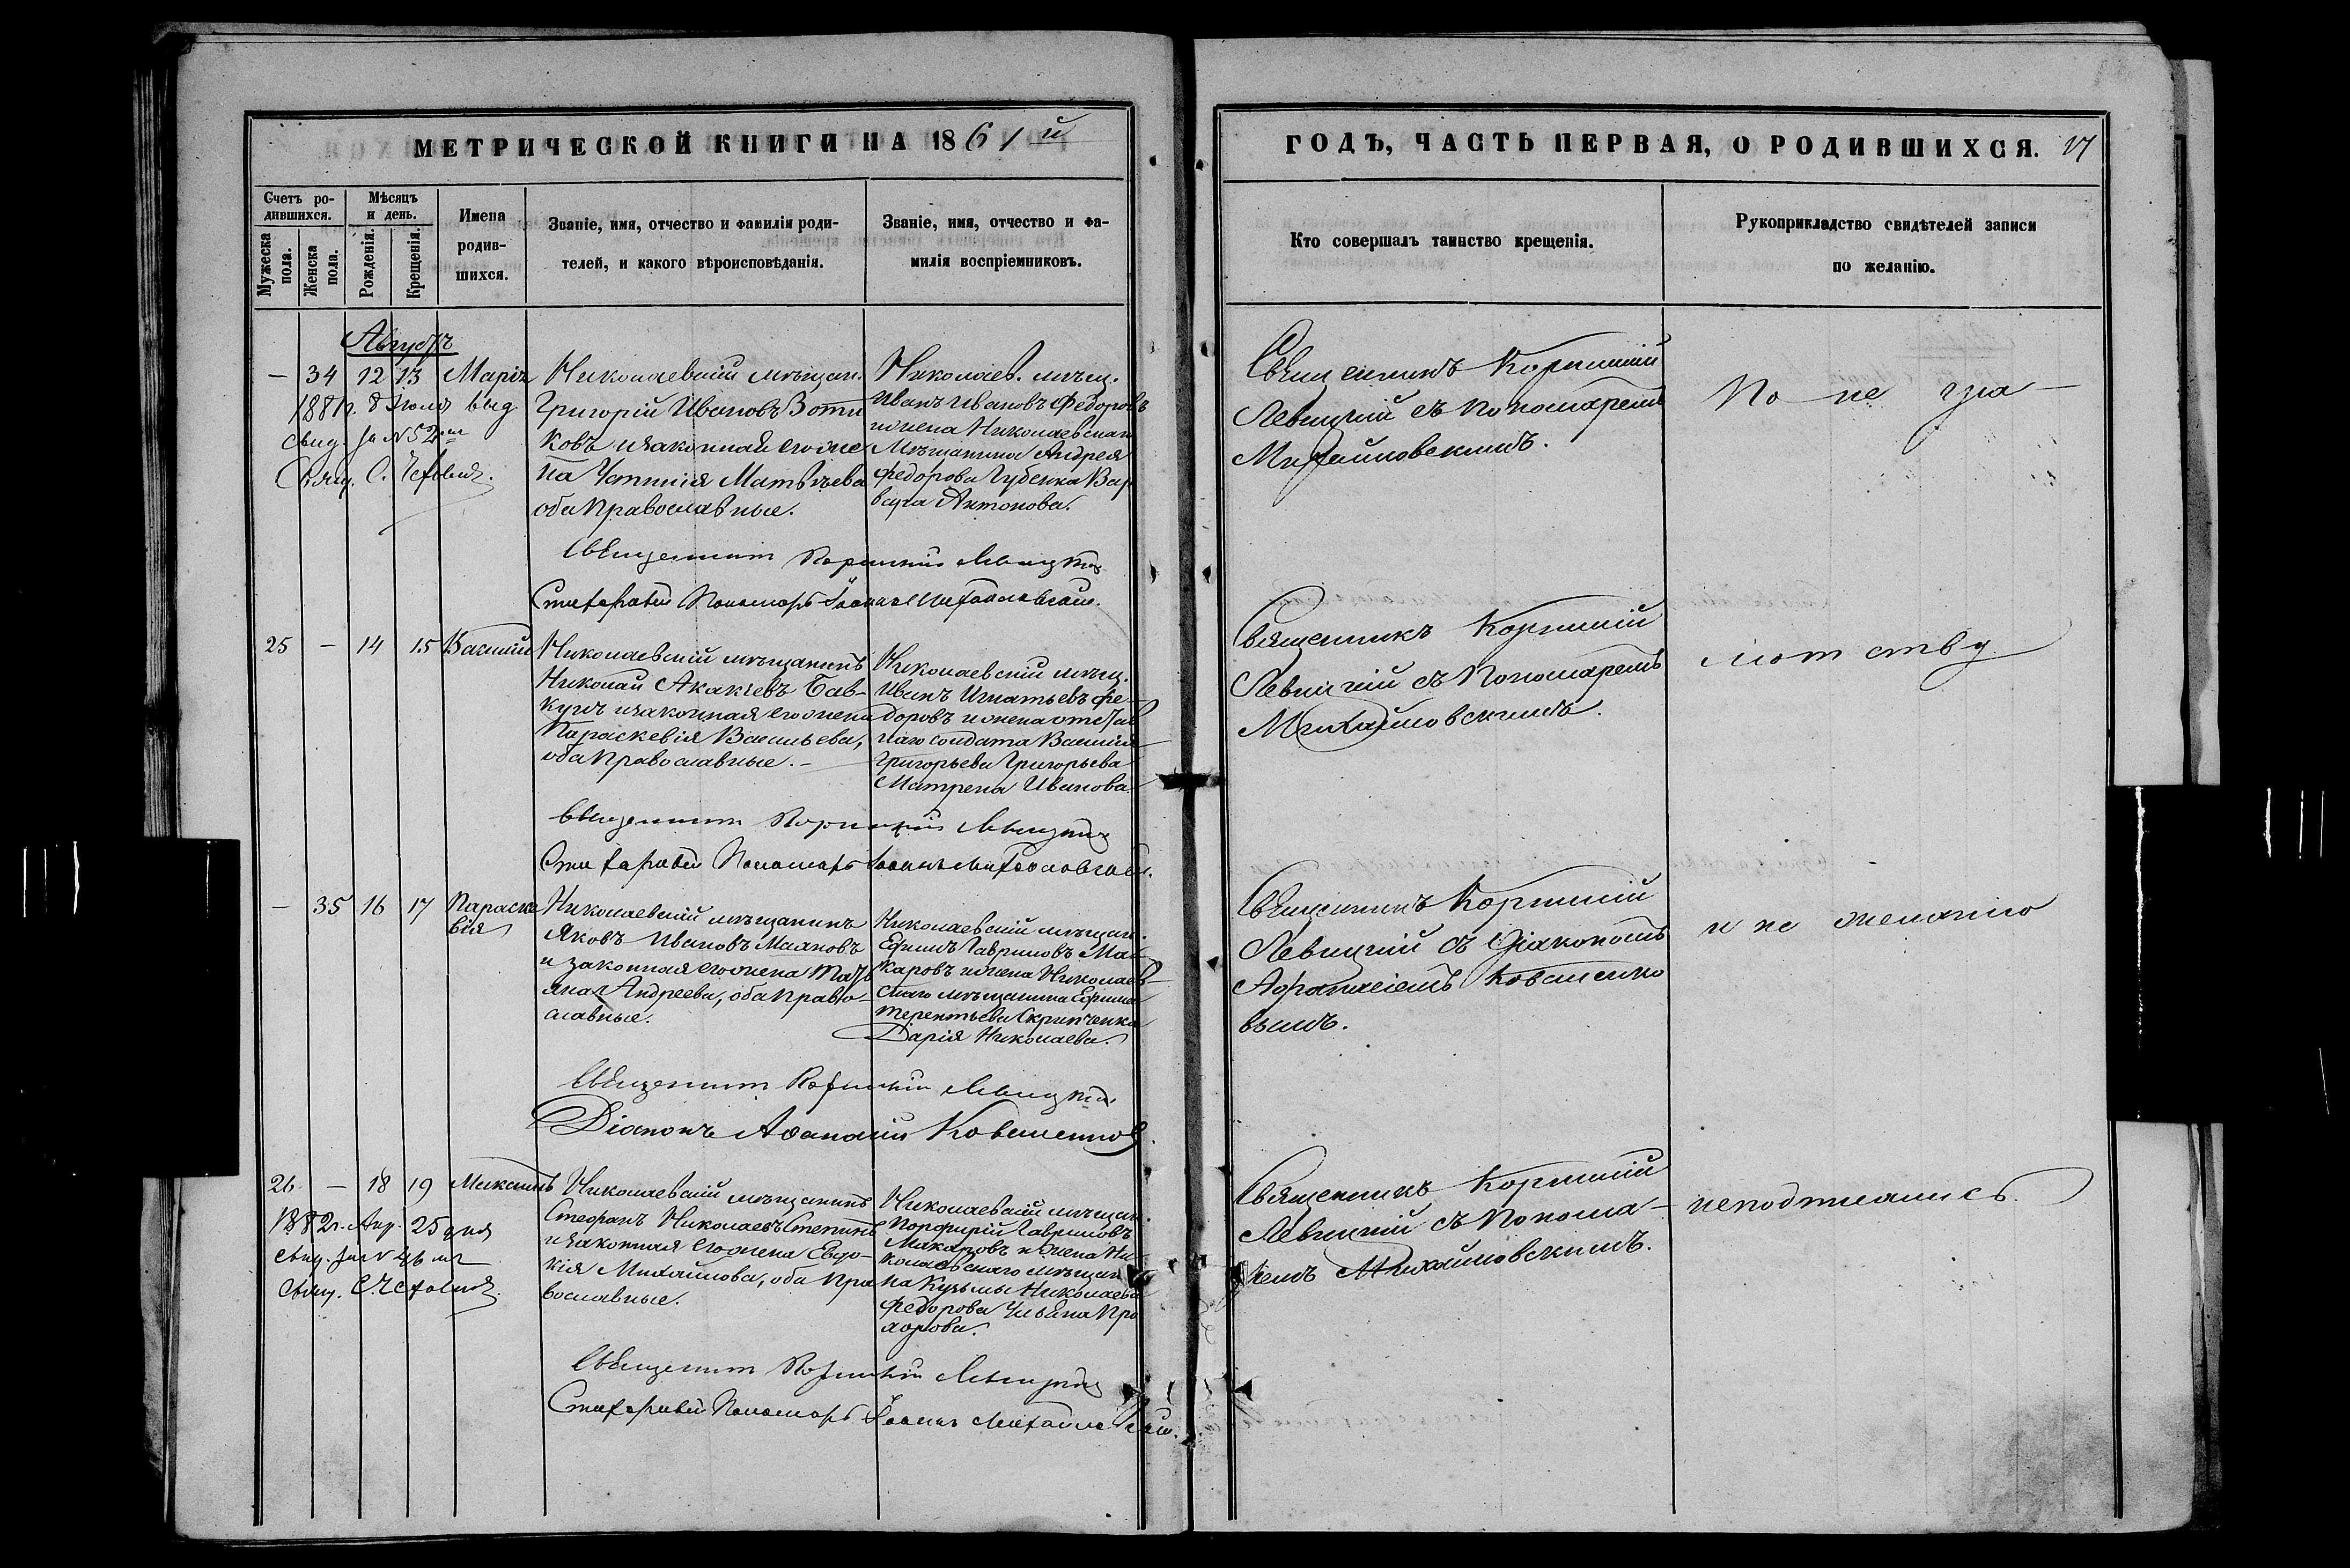 МЕТРИЧЕСКОЙ КНИГИ НА 1861й
Счетъ ро-
дившихся.
Мѣсяцъ
и день.
Мужеска
пола.
Женска
пола.
Рожденія.
Крещенія.
Имена
родив-
шихся.
Званіе, имя, отчество и фамилія роди-
телей, и какого вѣроисповѣданія.
Званіе, имя, отчество и фа-
милія воспріемниковъ.
Августъ
— 34 12 13 Марія
1881г. 8 Іюля выд.
свид. за № 52
Свящ. С.
Николаевскій мѣщан.
Григорій Ивановъ Воти
ковъ и законная его же
на Матвѣева
оба православные.
Николаев. мѣщ.
Иванъ Ивановъ Федоровъ
и жена Николаевскаго
Мѣщанина Андрея
Федорова Губенка Вар
вара Антонова.
Священникъ Корнилій Левицкій
Стихарный Пономарь Іоаннъ Михайловскій.
25 — 14 15 Василій
Николаевскій мѣщанинъ
Николай Акакіевъ Бав-
кунъ и законная его жена
Параскевія Васильева,
оба православные. —
Николаевскій мѣщ.
Иванъ Игнатьевъ Фе-
доровъ и жена отстав
наго солдата Василія
Григорьева Григорьева
Матрена Иванова.
Священникъ Корнилій Левицкій
Стихарный Пономарь Іоаннъ Михайловскій.
— 35 16 17 Параске
вія
Николаевскій мѣщанинъ
Яковъ Ивановъ Маяковъ
и законная его жена Тать
яна Андреева, оба право-
славные.
Николаевскій мѣщан.
Ефимъ Гавриловъ Ма-
каровъ и жена Николаев-
скаго мѣщанина Ефима
Терентьева Скрипченка
Дарія Николаева.
Священникъ Корнилій Левицкій
Діаконъ Аѳанасій Коваленковъ.
26 — 18 19 Максимъ
1882г. Апр. 25 дня
свид. за № 46
свящ. С.
Николаевскій мѣщанинъ
Стефанъ Николаевъ Степинъ
и законная его жена Евдо-
кія Михайлова, оба пра
вославные.
Николаевскій мѣщан.
Порфирій Гавриловъ
Макаровъ и жена Ни-
колаевскаго мѣщани
на Кузьмы Николаева
Федорова Ульяна Про
хорова.
Священникъ Корнилій Левицкій
Стихарный Пономарь Іоаннъ Михайловскій.
ГОДЪ, ЧАСТЬ ПЕРВАЯ, О РОДИВШИХСЯ. 17
Кто совершалъ таинство крещенія.
Рукоприкладство свидѣтелей записи
по желанію.
Священникъ Корнилій
Левицкій съ Пономаремъ
Михайловскимъ.
По не гра—
Священникъ Корнилій
Левицкій съ Пономаремъ
Михайловскимъ.
мотству
Священникъ Корнилій
Левицкій съ Діакономъ
Афанасіемъ Коваленко
вымъ.
и не желанію
Священникъ Корнилій
Левицкій съ Понома-
ремъ Михайловскимъ.
неподписались.